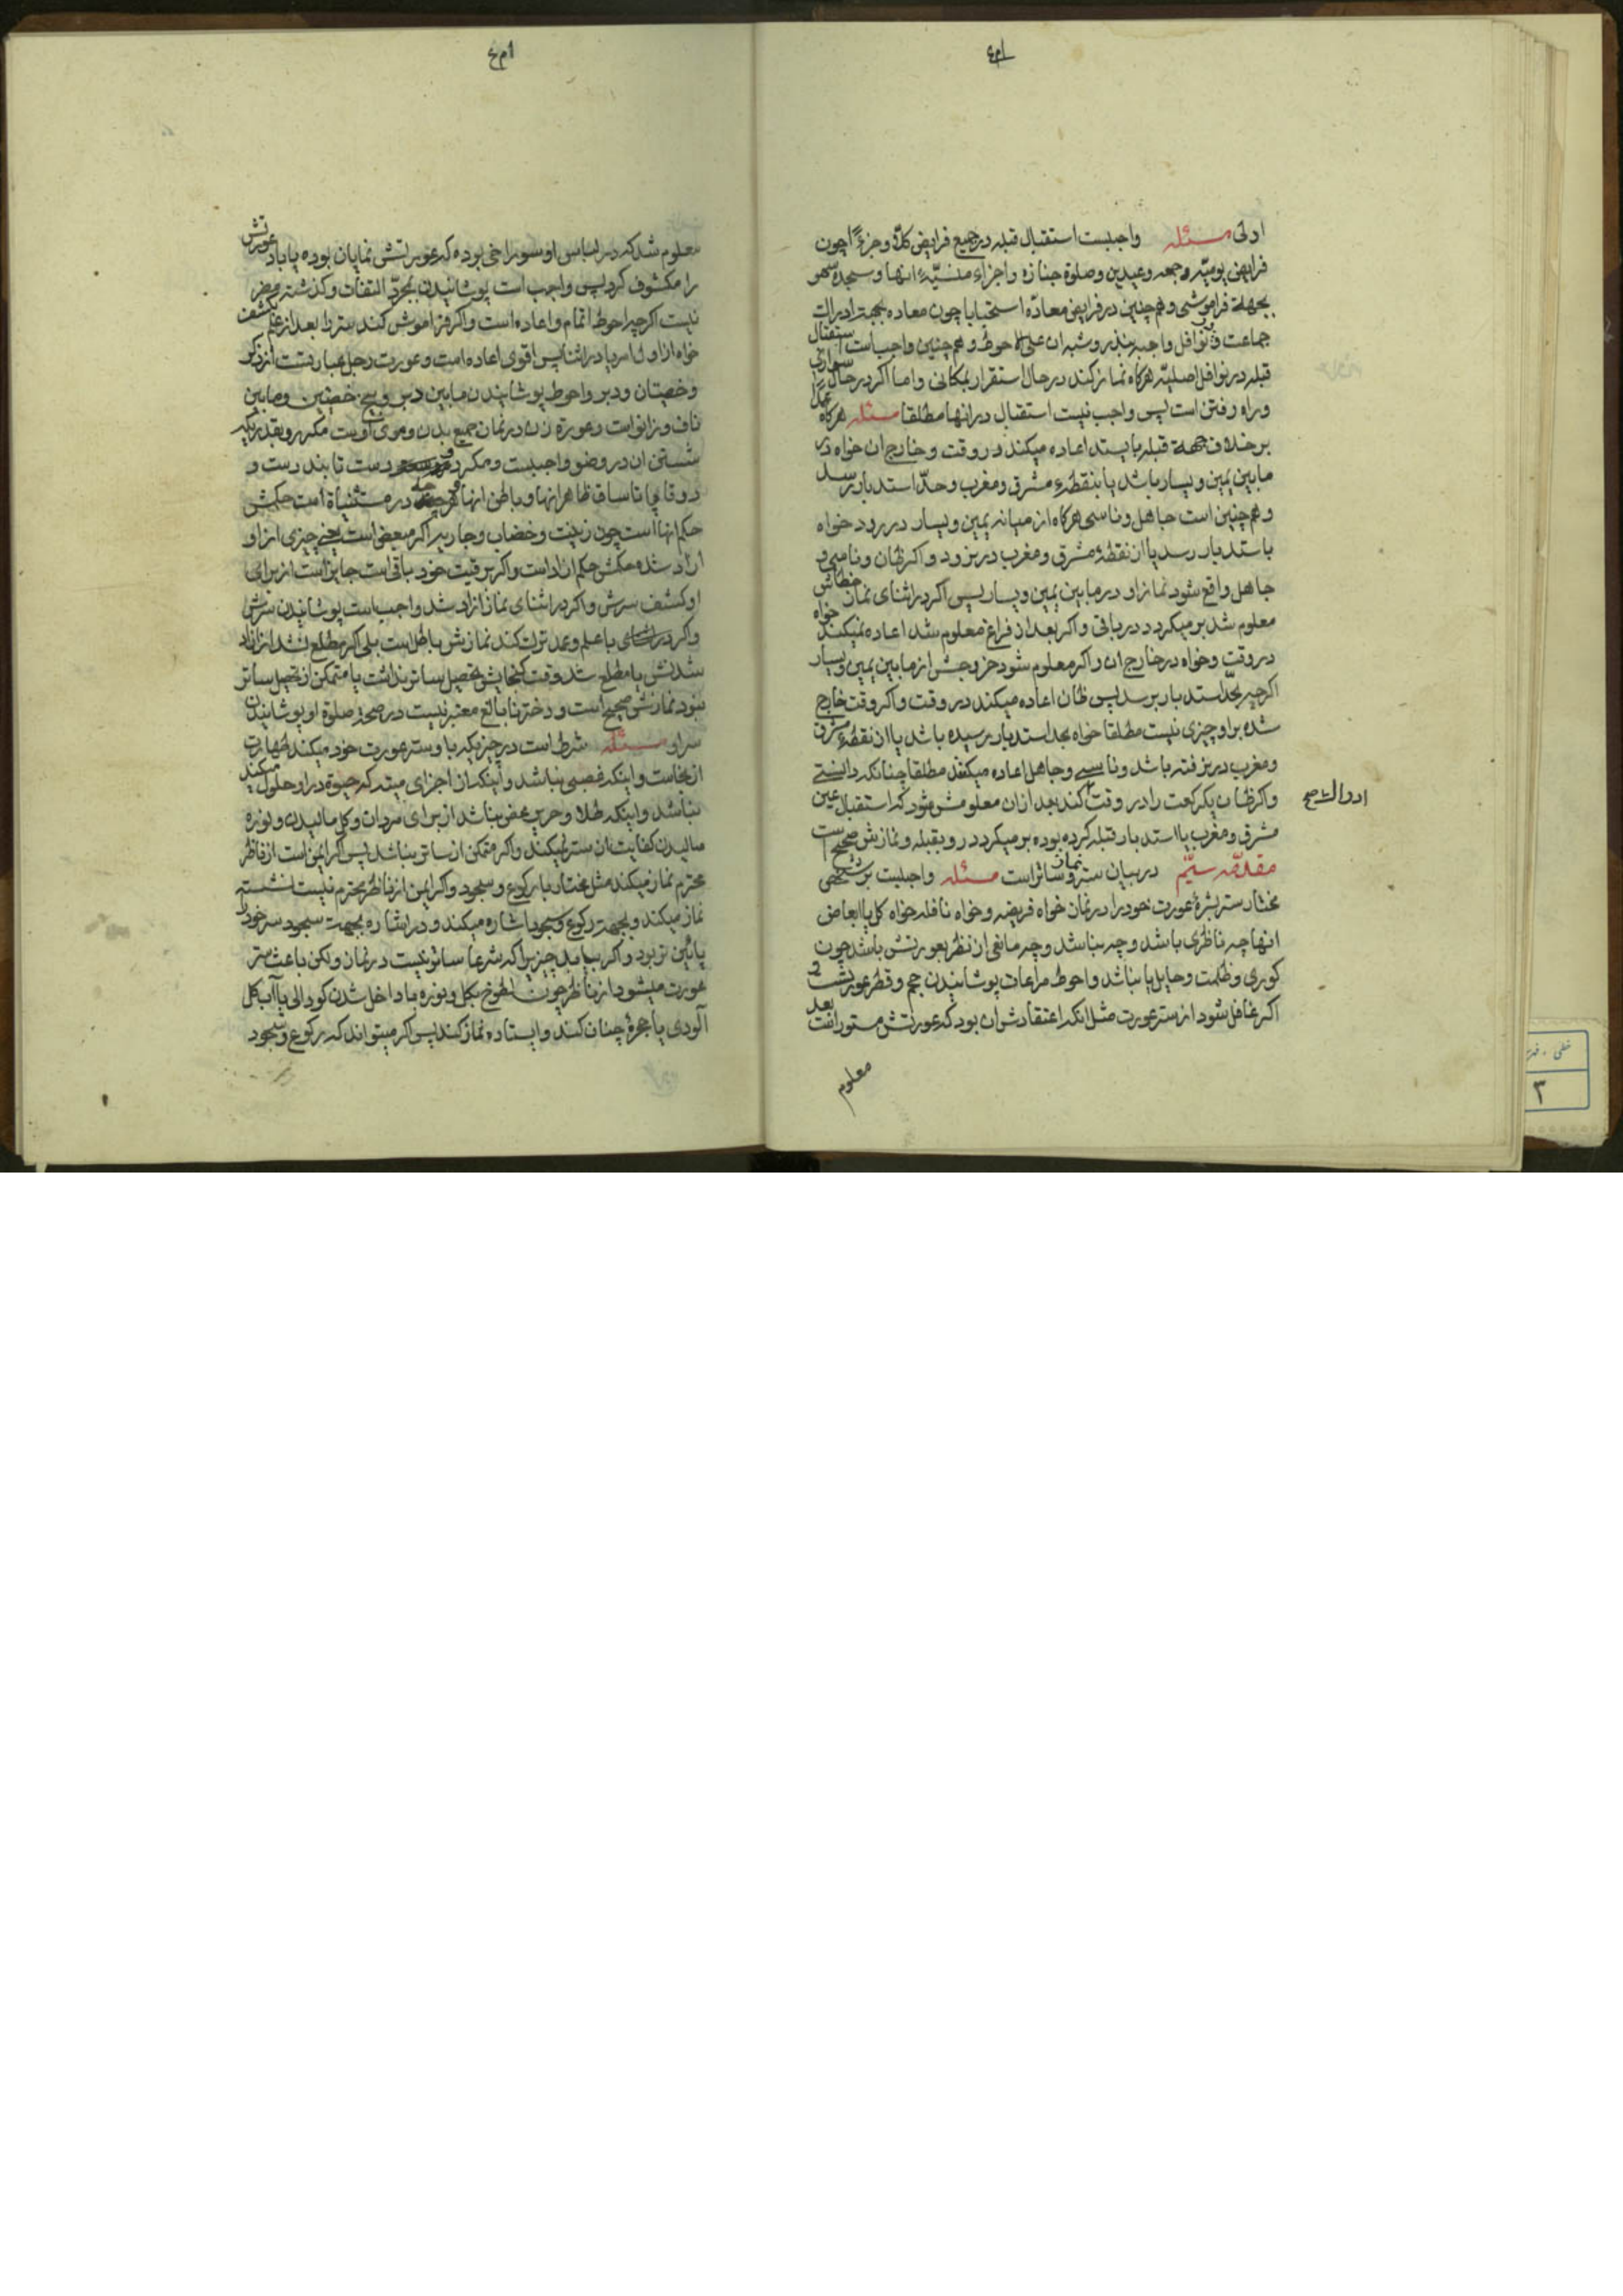 اولی مسئله واجبست استقبال قبله در جمیع فرایض کلاً و جزءً چون
فرایض یومیّه و جمعه و عیدین و صلوة جنازه و اجزاء منسیّهٔ انها و سجدهٔ سهو
بجههة فراموشی و همچنین در فرایض معاده استحبابا چون معاده بجهة ادراک
جماعت و نوافل واجبه بنذر و شبه ان علی الاحوط و همچنین واجب است استقبال
قبله در نوافل اصلیّه هرکاه نماز کند در حال استقرار بمکانی و اما اکر در حال سواری
و راه رفتن است پس واجب نیست استقبال در انها مطلقا مسئله هرکاه عمداً
بر خلاف جههة قبله بایستد اعاده میکند در وقت و خارج ان خواه در
مابین یمین و یسار باشد یا بنقطهٔ مشرق و مغرب و حدّ استدبار برسد
و همچنین است جاهل و ناسی هرکاه از میانه یمین و یسار در رود خواه
باستدبار رسد یا از نقطهٔ مشرق و مغرب در نرود و اکر ظان و ناسی و
جاهل واقع شود نماز او در مابین یمین و یسار پس اکر در اثنای نماز خطائش
معلوم شد بر میکردد در باقی و اکر بعد از فراغ معلوم شد اعاده نمیکند خواه
در وقت و خواه در خارج ان و اکر معلوم شود خروجش از مابین یمین و یسار
اکرچه بحدّ استدبار برسد پس ظان اعاده میکند در وقت و اکر وقت خارج
شده بر او چیزی نیست مطلقا خواه بحد استدبار رسیده باشد یا از نقطهٔ مشرق
و مغرب در نرفته باشد و ناسی و جاهل اعاده میکنند مطلقا چنانکه دانستی
و اکر ظان یکرکعت را در وقت کند بعد از ان معلومش شود که استقبال عین
ادراک صح
مشرق و مغرب یا استدبار قبله کرده بوده بر میکردد رو بقبله و نمازش صحیح است
مقدمّه سیّم در بیان ستر و ساتر نماز است مسئله واجبست بر شخص
مختار ستر بشرهٔ عورت خود را در نماز خواه فریضه و خواه نافله خواه کل یا ابعاض
انها چه ناظری باشد و چه نباشد و چه مانعی از نظر بعورتش باشد چون
کوری و ظلمت و حایل یا نباشد و احوط مراعات پوشانیدن حجم و قطر عورتست و
اکر غافل شود از ستر عورت مثل انکه اعتقادش ان بود که عورتش مستور است بعد
معلوم
معلوم شد که در لباس او سوراخی بوده که عورتش نمایان بوده یا باد عورتش
را مکشوف کرد پس واجب است پوشانیدن بمجرّد التفات و کذشته مضر
نیست اکرچه احوط اتمام و اعاده است و اکر فراموش کند ستر را بعد از علم بکشف
خواه از اول امر یا در اثنا پس اقوی اعاده است و عورت رجل عبارتست از ذکر
و خصیتان و دبر و احوط پوشانیدن مابین دبر و بیخ خصیتین و مابین
ناف و زانو است و عورة زن در نماز جمیع بدن و موی اوست مکر رو بقدریکه
شستن ان در وضو واجبست و مکر دو دست تا بند دست و
دو قدم تا ساق ظاهر انها و باطن انها و انچه در مستثنیاة است حکمش
حکم انها است چون زینت و خضاب و جاریه اکر مبعض است یعنی چیزی از او
ازاد شده حکمش حکم ازاد است و اکر بر رقیت خود باقی است جایز است از برای
او کشف سرش و اکر در اثنای نماز ازاد شد واجب است پوشانیدن سرش
و اکر با علم و عمد ترک کند نمازش باطل است بلی اکر مطلع نشد از ازاد
شدنش یا مطلع شد وقت کنجایش تحصیل ساتر نداشت یا متمکن از تحصیل ساتر
نبود نمازش صحیح است و دختر نابالغ معتبر نیست در صحة صلوة او پوشانیدن
سر او مسئله شرط است در چیزیکه با او ستر عورت خود میکند طهارت
از نجاست و اینکه غصبی نباشد و اینکه از اجزای میته که حیوة در او حلول میکند
نباشد و اینکه طلا و حریر محض نباشد از برای مردان و کل مالیدن و نوره
مالیدن کفایت از ستر نمیکند و اکر متمکن از ساتر نباشد پس اکر ایمن است از ناظر
محترم نماز میکند مثل مختار با رکوع و سجود و اکر ایمن از ناظر محترم نیست نشسته
نماز میکند و بجههت رکوع و سجود اشاره میکند و در اشاره بجههت سجود سر خود را
پائین تر برد و اکر بیابد چیزیرا که شرعا ساتر نیست در نماز ولکن باعث ستر
عورت میشود از ناظر چون لطوخ بکل و نوره یا داخل شدن کودالی یا آب کل
آلودی یا حجرهٔ چنان کند و ایستاده نماز کند پس اکر میتواند که رکوع و سجود